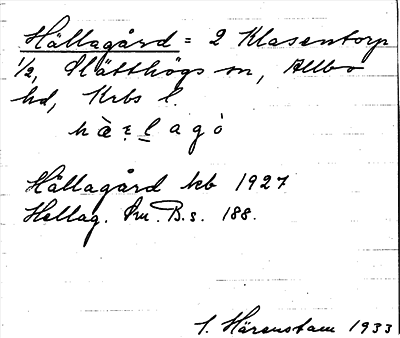 Hällagård = 2 Klasentorp
1/2, Slätthögs sn, Allbo
hd, Krbs l.
Hällagård kb 1927
Hellag. Sm. B.s. 188.
S. Härenstam 1933